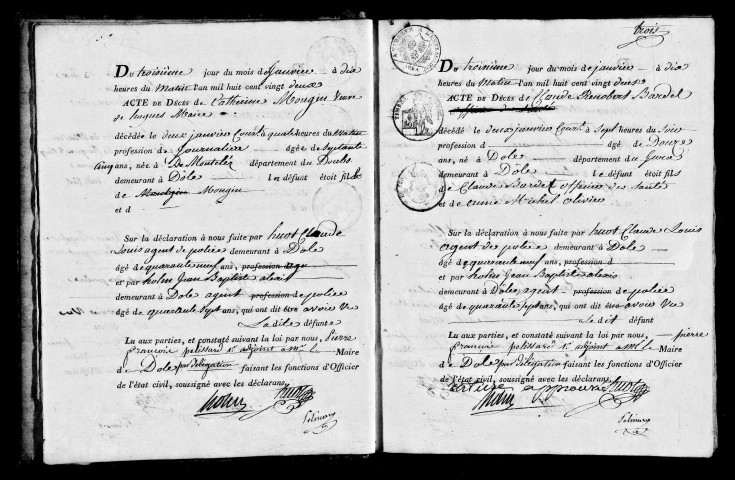 Du troisième jour du mois de janvier à dix
heures du Matin l'an mil huit cent vingt deux
ACTE DE DÉCÈS de Catherine Mongin Veuve
de hugues Maire
décédée le deux janvier Court à quatre heures du Matin
profession de Journalière âgée de Soixante
cinq ans, née à De Montelié département du Doubs
demeurant à Dole le défunt étoit fille
de Mongin
et d
Sur la déclaration à nous faite par huot Claude
Louis agent de police demeurant à Dole
âgé de quarante neuf ans, profession de
et par Jean Baptiste alexis
demeurant à Dole agent profession de police
âgé de quarante sept ans, qui ont dit être avoir vu
La dite défunte
Lu aux parties, et constaté suivant la loi par nous, pierre
françois polissard 1er adjoint à Mr le Maire
d e Dole par délégation faisant les fonctions d'Officier
de l'état civil, soussigné avec les déclarans.
huot
trois
Du troisième jour du mois de janvier à dix
heures du Matin l'an mil huit cent vingt deux
ACTE DE DÉCÈS de Claude Renobert Bardel
décédé le deux janvier Court à Sept heures du Soir
profession d âgé de Douze
ans, né à Dole département du Jura
demeurant à Dole le défunt étoit fils
de Claude Bardel officier de Santé
et de anne Michel olivier
Sur la déclaration à nous faite par huot Claude Louis
agent de police demeurant à Dole
âgé de quarante neuf ans, profession d
et par Jean Baptiste alexis
demeurant à Dole, agent profession de police
âgé de quarante Sept ans, qui ont dit être avoir vu
Le dit défunt
Lu aux parties, et constaté suivant la loi par nous, pierre
françois polissard 1er adjoint à Mr le Maire
d e Dole par délégation faisant les fonctions d'Officier
de l'état civil, soussigné avec les déclarans.
rature approuvé huot